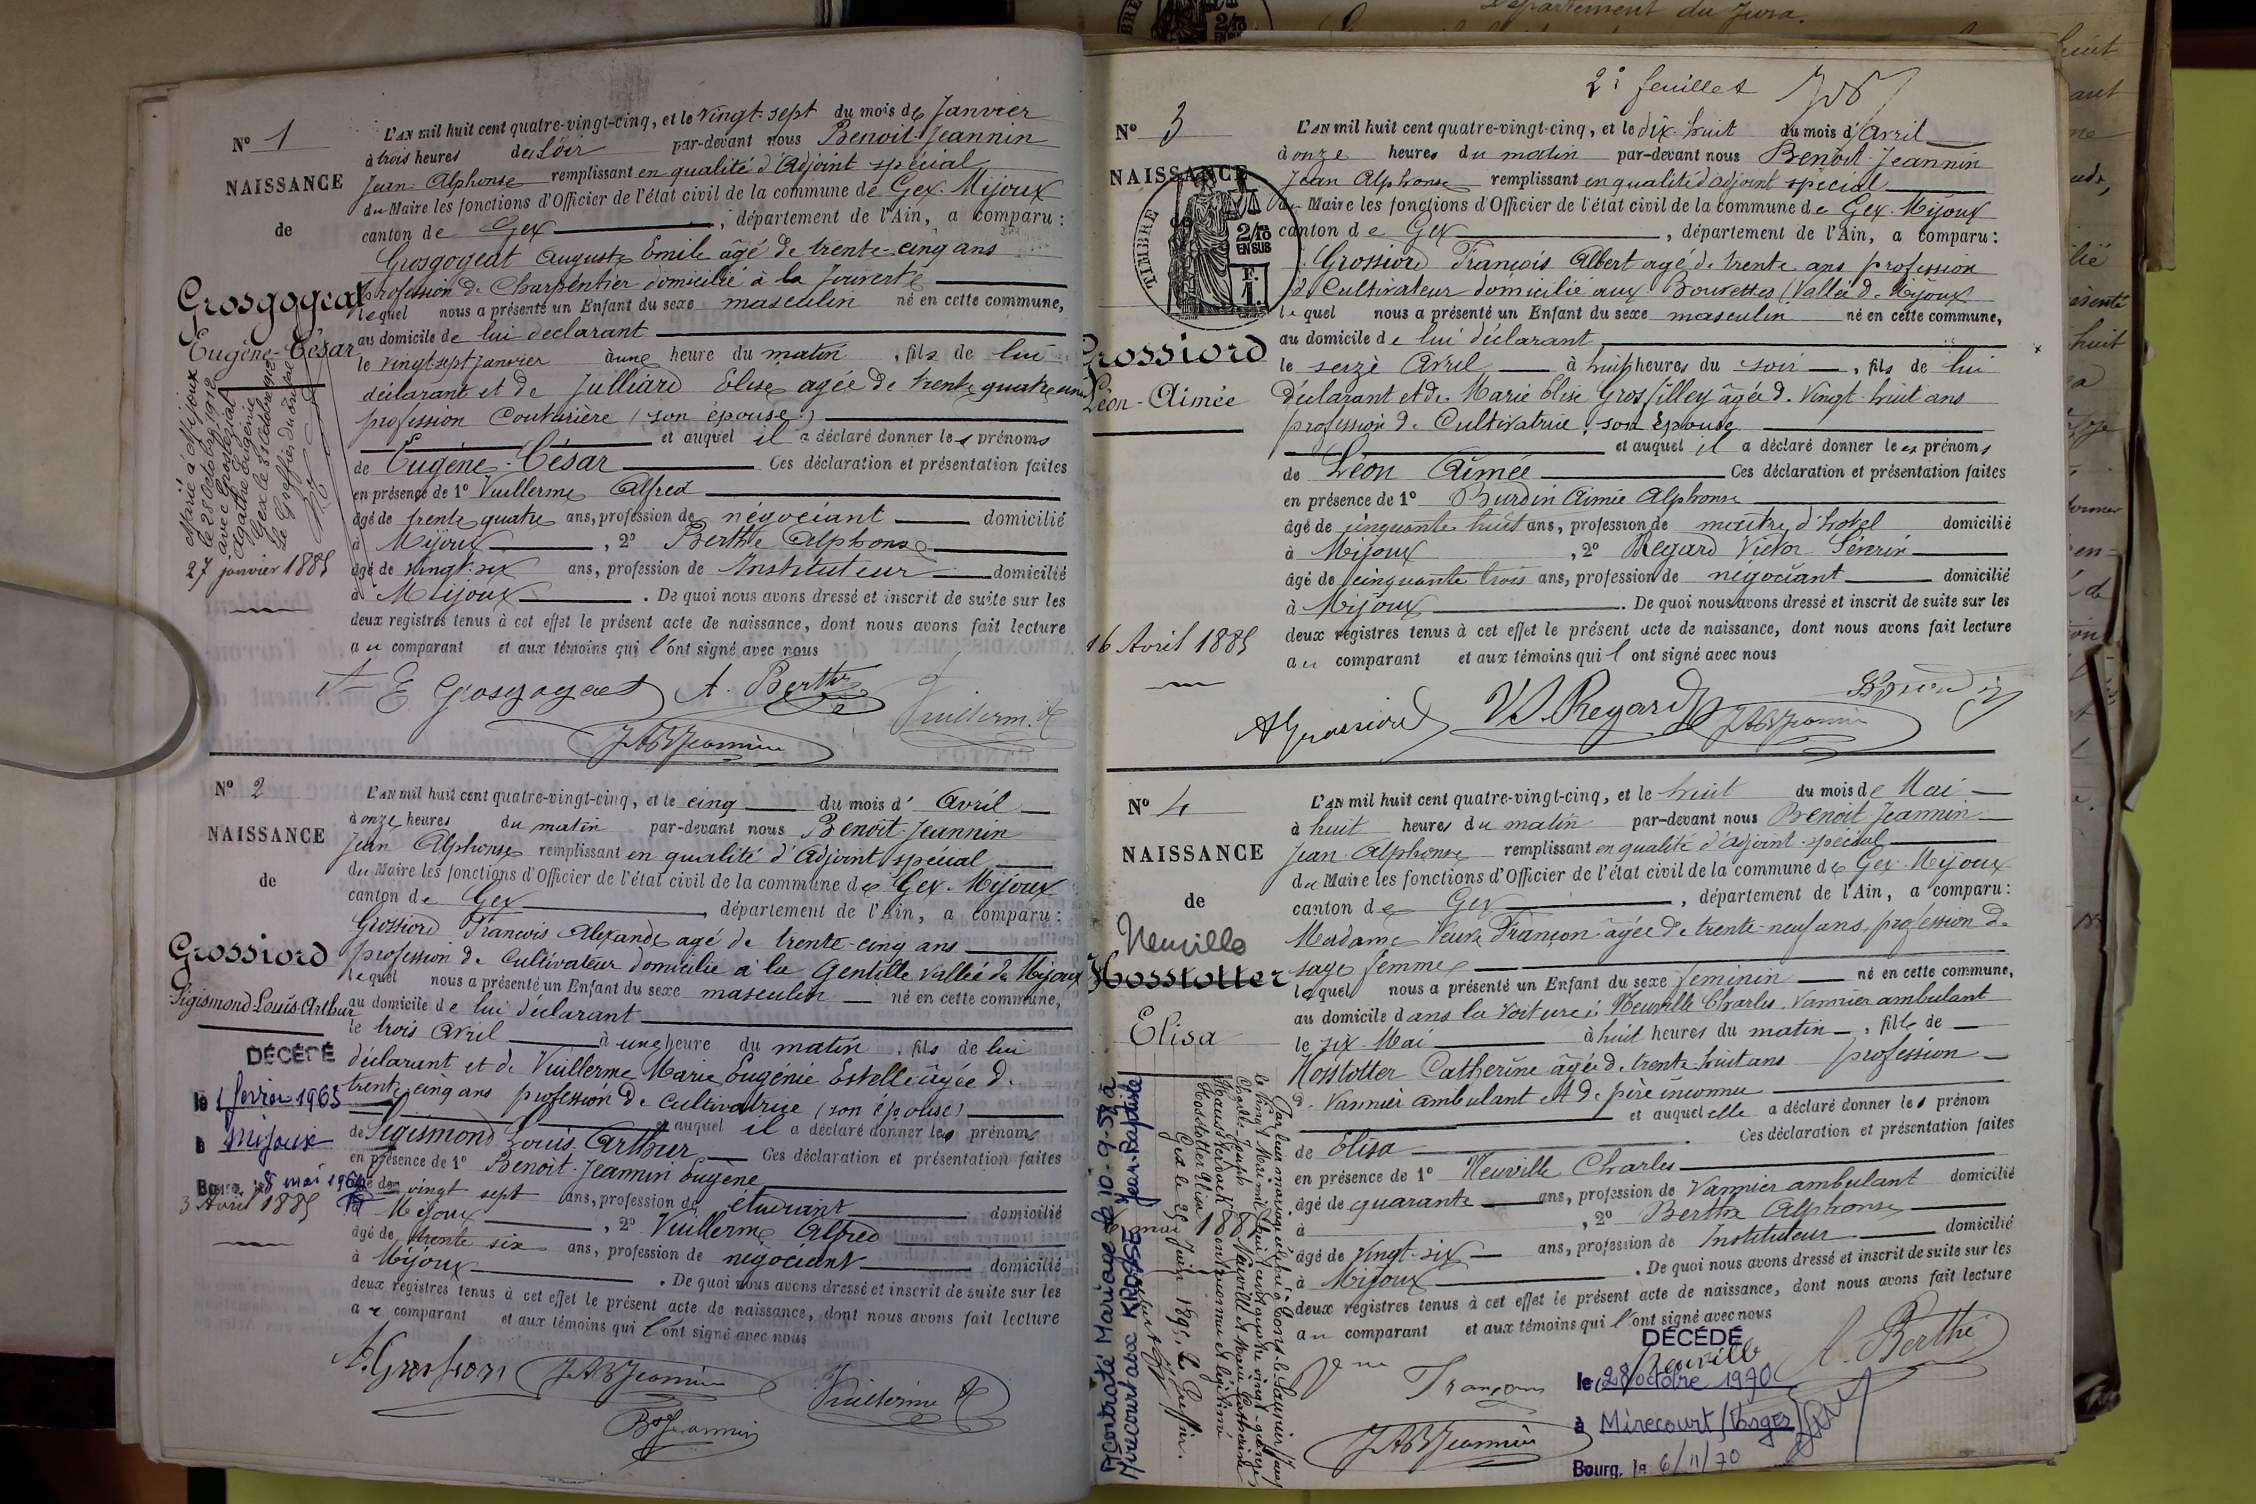 N° 1
NAISSANCE
de
Grosgogeat
Eugène-César
Marié à Mijoux
le 28 Octobre 1912
avec Grosgogeat
Agathe Eugénie
Gex le 31 Octobre 1912
Le Greffier du Tribunal
27 janvier 1885
L'AN mil huit cent quatre-vingt-cinq, et le vingt-sept du mois de Janvier
à trois heures du soir par-devant nous Benoit-Jeannin
Jean Alphonse remplissant en qualité d'Adjoint spécial
du Maire les fonctions d'Officier de l'état civil de la commune de Gex-Mijoux
canton de Gex, département de l'Ain, a comparu:
Grosgogeat Auguste Emile âgé de trente-cinq ans
profession de Charpentier domicilié à la
lequel nous a présenté un Enfant du sexe masculin né en cette commune,
au domicile de lui déclarant
le vingt-sept Janvier à une heure du matin, fils de lui
déclarant et de Julliard Elise agée de trente quatre ans
profession Couturière (son épouse)
et auquel il a déclaré donner les prénoms
de Eugène-César Ces déclaration et présentation faites
en présence de 1° Vuillerme Alfred
âgé de trente quatre ans, profession de négociant domicilié
à Mijoux, 2° Berthe Alphonse
âgé de vingt-six ans, profession de Instituteur domicilié
à Mijoux. De quoi nous avons dressé et inscrit de suite sur les
deux registres tenus à cet effet le présent acte de naissance, dont nous avons fait lecture
au comparant et aux témoins qui l'ont signé avec nous
E Grosgogeat A. Berthe Vuillerme A
JABJeannin
N° 2
NAISSANCE
de
Grossiord
Sigismond Louis Arthur
DÉCÉDÉ
le 1 février 1965
à Mijoux
Bourg, le 8 mai 196
3 Avril 1885
L'AN mil huit cent quatre-vingt-cinq, et le cinq du mois d'Avril
à onze heures du matin par-devant nous Benoît-Jeannin
Jean Alphonse remplissant en qualité d'Adjoint spécial
du Maire les fonctions d'Officier de l'état civil de la commune de Gex-Mijoux
canton de Gex, département de l'Ain, a comparu:
Grossiord François Alexandre agé de trente-cinq ans
profession de cultivateur domicilié à la Gentille vallée de Mijoux
lequel nous a présenté un Enfant du sexe masculin né en cette commune,
au domicile de lui déclarant
le trois Avril à une heure du matin, fils de lui
déclarant et de Vuillerme Marie Eugénie Estelle âgée de
trente-cinq ans profession de cultivatrice (son épouse)
auquel il a déclaré donner les prénoms
de Sigismond Louis Arthur Ces déclaration et présentation faites
en présence de 1° Benoit-Jeannin Eugène
âgé de vingt sept ans, profession de étudiant domicilié
à Mijoux, 2° Vuillerme Alfred
âgé de trente six ans, profession de négociant domicilié
à Mijoux. De quoi nous avons dressé et inscrit de suite sur les
deux registres tenus à cet effet le présent acte de naissance, dont nous avons fait lecture
au comparant et aux témoins qui l'ont signé avec nous
A. Grossiord JABJeannin Vuillerme A
Bt Jeannin
Département du Jura.
2e feuillet
N° 3
NAISSANCE
de
TIMBRE
2/10
EN SUS
Grossiord
Léon-Aimée
16 Avril 1885
L'AN mil huit cent quatre-vingt-cinq, et le dix-huit du mois d'Avril
à onze heures du matin par-devant nous Benoit-Jeannin
Jean Alphonse remplissant en qualité d'adjoint spécial
du Maire les fonctions d'Officier de l'état civil de la commune de Gex-Mijoux
canton de Gex, département de l'Ain, a comparu:
Grossiord François Albert agé de trente ans profession
de Cultivateur domicilié aux Bourettes (Vallée de Mijoux
lequel nous a présenté un Enfant du sexe masculin né en cette commune,
au domicile de lui déclarant
le seize Avril à huit heures du soir, fils de lui
déclarant et de Marie Elise Grosfilley âgée de Vingt-huit ans
profession de Cultivatrice, son Epouse
et auquel il a déclaré donner les prénoms
de Léon Aimée Ces déclaration et présentation faites
en présence de 1° Burdin Aimée Alphonse
âgé de cinquante huit ans, profession de maître d'hotel domicilié
à Mijoux, 2° Regard Victor Séverin
âgé de cinquante trois ans, profession de négociant domicilié
à Mijoux. De quoi nous avons dressé et inscrit de suite sur les
deux registres tenus à cet effet le présent acte de naissance, dont nous avons fait lecture
au comparant et aux témoins qui l'ont signé avec nous
AGrossiord VS. Regard JABJeannin
N° 4
NAISSANCE
de
Neuville
Hosstotter
Elisa
A contracté Mariage le 10-9-52 à
Mirecourt avec KROSSE Jean-Baptiste
Par leur mariage célébré à Lons-le-Saunier (Jura)
le vingt Mai mil huit cent quatre vingt-quinze
Gex le 25 Juin 1895. Le Greffier.
L'AN mil huit cent quatre-vingt-cinq, et le huit du mois de Mai
à huit heures du matin par-devant nous Benoit Jeannin
Jean-Alphonse remplissant en qualité d'adjoint-spécial
du Maire les fonctions d'Officier de l'état civil de la commune de Gex-Mijoux
canton de Gex, département de l'Ain, a comparu:
Madame Veuve Françon âgée de trente-neuf ans, profession de
sage femme
lequel nous a présenté un Enfant du sexe féminin né en cette commune,
au domicile dans la voiture à Neuville Charles, Vannier ambulant
le six Mai à huit heures du matin, fille de
Hosstotter Catherine âgée de trente-huit ans profession
de Vannier ambulant et de père inconnu
et auquel elle a déclaré donner les prénom
de Elisa Ces déclaration et présentation faites
en présence de 1° Neuville Charles
âgé de quarante ans, profession de Vannier ambulant domicilié
à, 2° Berthe Alphonse
âgé de Vingt-six ans, profession de Instituteur domicilié
à Mijoux. De quoi nous avons dressé et inscrit de suite sur les
deux registres tenus à cet effet le présent acte de naissance, dont nous avons fait lecture
au comparant et aux témoins qui l'ont signé avec nous
Vve Françon Neuville A. Berthe
JABJeannin
DÉCÉDÉ
le 28 octobre 1970
à Mirecourt (Vosges)
Bourg, le 6/11/70